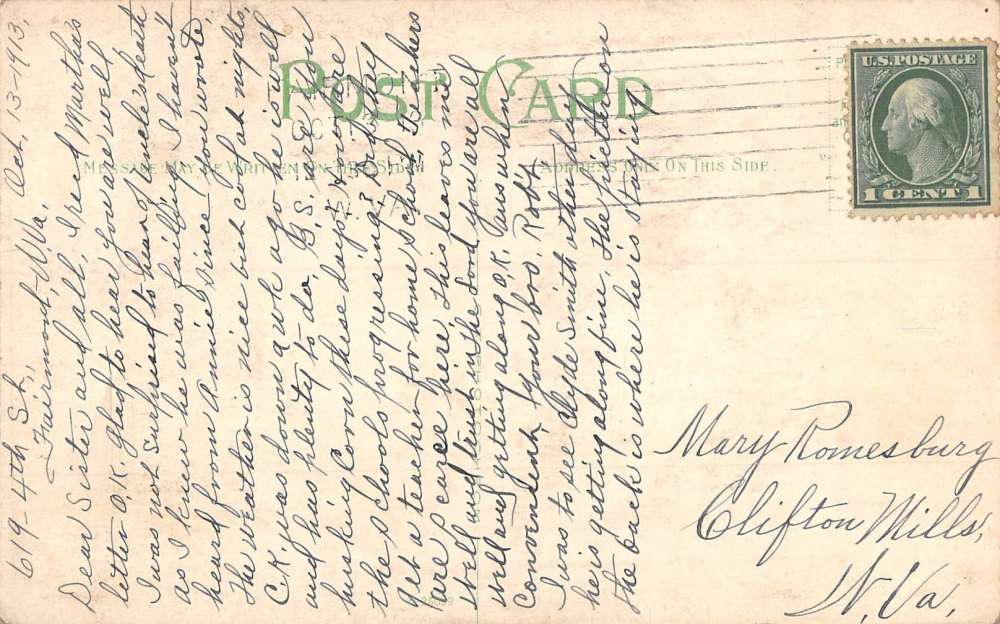 POST CARD
MESSAGE MAY BE WRITTEN ON THIS SIDE
ADDRESS ONLY ON THIS SIDE
U.S. POSTAGE
1 CENT 1
619-4th St.,
Fairmont, W.Va, Oct, 13-1913,
Dear Sister and all, I rec'd Martha's
letter O.K. glad to hear you are well
I was not surprised to hear of uncle's death
as I knew he was failing. I havent
heard from Amnie since you wrote,
The weather is nice but cool at nights,
C.K. was down a wk ago he is well
and has plenty to do. B.S. are you
husking corn these days & how are
the schools progressing? Did they
get a teacher for home school, teachers
are scarce here, This leaves me
well and trust in the Lord you are all
well and getting along O.K. Ans when
convenient Your bro. Robt
I was to see Clyde Smith other day
he is getting along fine, the picture on
the back is where he is staying
Mary Romesburg
Clifton Mills,
W. Va,